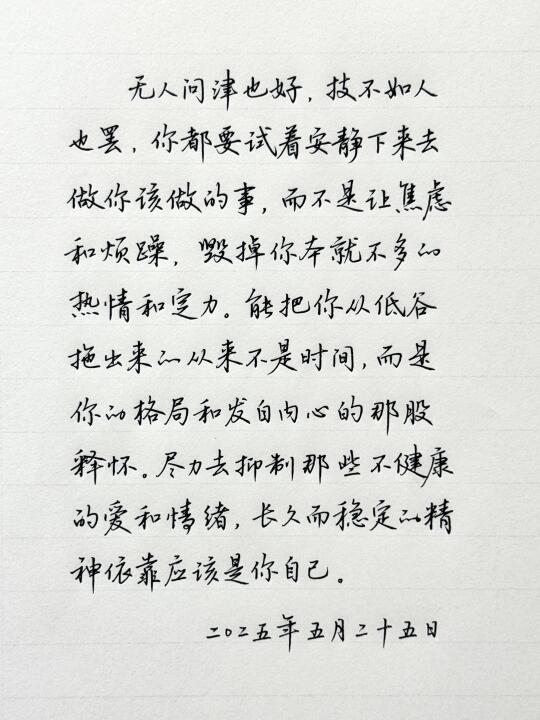 无人问津也好，技不如人
也罢，你都要试着安静下来去
做你该做的事，而不是让焦虑
和烦躁，毁掉你本就不多的
热情和定力。能把你从低谷
拖出来的从来不是时间，而是
你的格局和发自内心的那股
释怀。尽力去抑制那些不健康
的爱和情绪，长久而稳定的精
神依靠应该是你自己。
二〇二五年五月二十五日